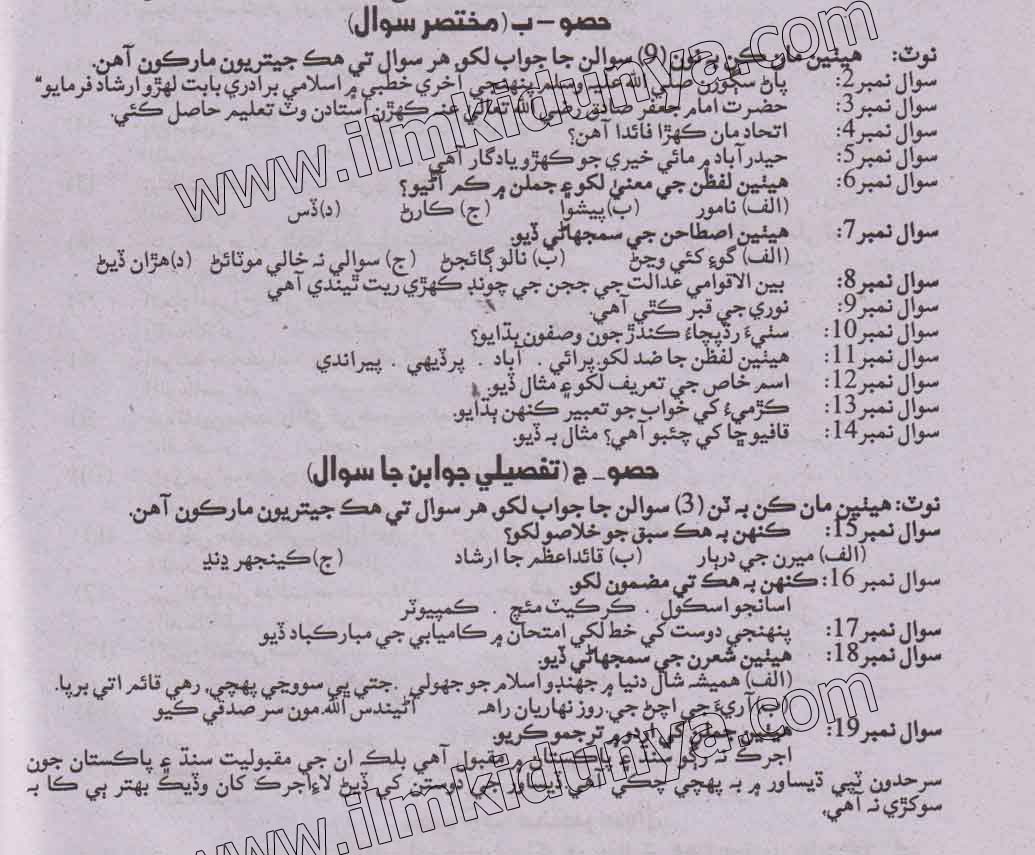 حصو – ب (مختصر سوال)
نوٽ: هيٺين مان ڪن به نون (9) سوالن جا جواب لکو. هر سوال تي هڪ جيتريون مارڪون آهن.
سوال نمبر2: پاڻ سڳورن صلي الله عليه وسلم پنهنجي آخري خطبي ۾ اسلامي برادري بابت ڪهڙو ارشاد فرمايو"
سوال نمبر3: حضرت امام جعفر صادق رضي الله تعاليٰ عنه ڪهڙن استادن وٽ تعليم حاصل ڪئي.
سوال نمبر4: اتحاد مان ڪهڙا فائدا آهن؟
سوال نمبر5: حيدرآباد ۾ مائي خيري جو ڪهڙو يادگار آهي
سوال نمبر6: هيٺين لفظن جي معنيٰ لکو ۽ جملن ۾ ڪم آڻيو؟
(الف) نامور (ب) پيشوا (ج) ڪارڻ (د) ڏس
سوال نمبر7: هيٺين اصطاحن جي سمجهاڻي ڏيو.
(الف) گوءِ کڻي وڃڻ (ب) نالو ڳائجڻ (ج) سوالي نه خالي موٽائڻ (د) هڙان ڏيڻ
سوال نمبر8: بين الاقوامي عدالت جي ججن جي چونڊ ڪهڙي ريت ٿيندي آهي
سوال نمبر9: نوري جي قبر ڪٿي آهي.
سوال نمبر10: سٺيءَ رڌپچاءَ ڪندڙ جون وصفون ٻڌايو؟
سوال نمبر11: هيٺين لفظن جا ضد لکو. پرائي . آباد . پرڏيهي . پيراندي
سوال نمبر12: اسم خاص جي تعريف لکو ۽ مثال ڏيو.
سوال نمبر13: ڪڙميءَ کي خواب جو تعبير ڪنهن ٻڌايو.
سوال نمبر14: قافيو ڇا کي چئبو آهي؟ مثال به ڏيو.
حصو – ج (تفصيلي جوابن جا سوال)
نوٽ: هيٺين مان ڪن به ٽن (3) سوالن جا جواب لکو. هر سوال تي هڪ جيتريون مارڪون آهن.
سوال نمبر15: ڪنهن به هڪ سبق جو خلاصو لکو؟
(الف) ميرن جي دربار (ب) قائداعظم جا ارشاد (ج) ڪينجهر ڍنڍ
سوال نمبر 16: ڪنهن به هڪ تي مضمون لکو.
اسانجو اسڪول . ڪرڪيٽ مئچ . ڪمپيوٽر
سوال نمبر17: پنهنجي دوست کي خط لکي امتحان ۾ ڪاميابي جي مبارڪباد ڏيو
سوال نمبر18: هيٺين شعرن جي سمجهاڻي ڏيو.
(الف) هميشه شال دنيا ۾ جهنڊو اسلام جو جهولي . جتي پي سووڃي پهچي، رهي قائم اتي برپا.
(ب) آريءَ جي اچڻ جي، روز نهاريان راهه آڻيندس الله مون سر صدقي ڪيو
سوال نمبر19: هيٺين جملن کي اردو ۾ ترجمو ڪريو.
اجرڪ نه رڳو سنڌ ۽ پاڪستان ۾ مقبول آهي بلڪه ان جي مقبوليت سنڌ ۽ پاڪستان جون
سرحدون ٽپي ڏيساور ۾ به پهچي چڪي آهي ڏيساور جي دوستن کي ڏيڻ لاءِ اجرڪ کان وڌيڪ بهتر ٻي ڪا به
سوکڙي نه آهي.
www.ilmkidunya.com
www.ilmkidunya.com